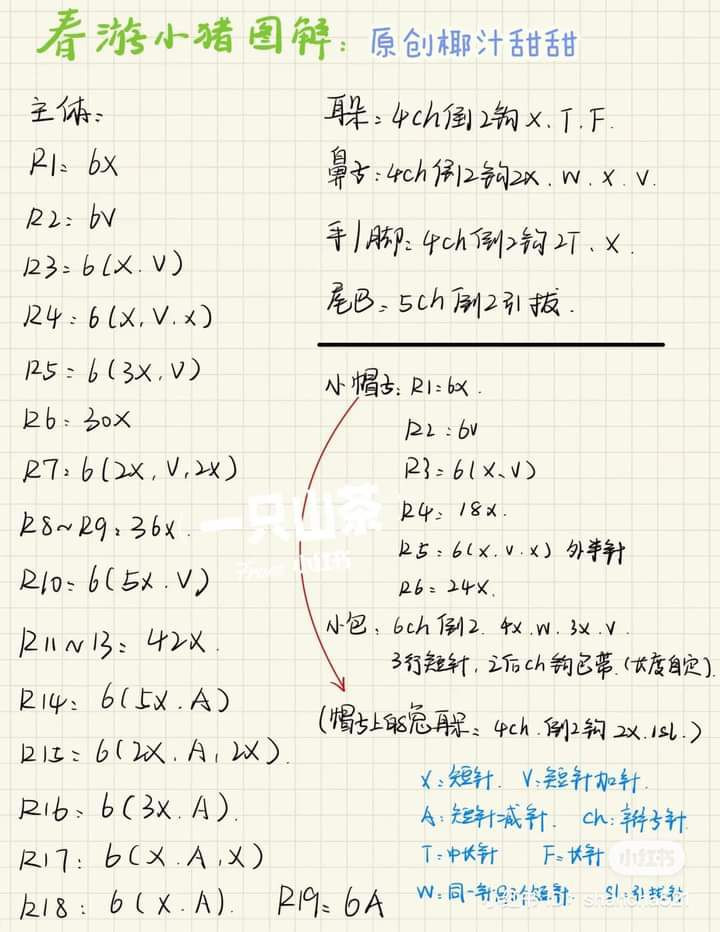 春游小猪图解：原创椰汁甜甜
主体：
R1：6X
R2：6V
R3：6(X.V)
R4：6(X,V,X)
R5：6(3X,V)
R6：30X
R7：6(2X,V,2X)
R8~R9：36X.
R10：6(5X.V)
R11~13：42X.
R14：6(5X.A)
R15：6(2X.A,2X).
R16：6(3X.A).
R17：6(X.A,X)
R18：6(X.A). R19：6A
耳朵：4ch倒2钩X.T.F.
鼻子：4ch倒2钩2X.W.X.V.
手/脚：4ch倒2钩2T、X.
尾巴：5ch倒2引拔.
小帽子：R1：6X.
R2：6V
R3：6(X、V)
R4：18X.
R5：6(X.V.X) 外半针
R6：24X.
小包：6ch倒2.4X.W.3X.V.
3行短针，之后ch钩包带.(长度自定).
(帽子上的兔耳朵：4ch.倒2钩2X.1sl.)
X：短针. V：短针加针.
A：短针减针. Ch：辫子针
T：中长针 F：长针
W：同一针 短针 Sl：引拔针
一只山茶
小红书
小红书